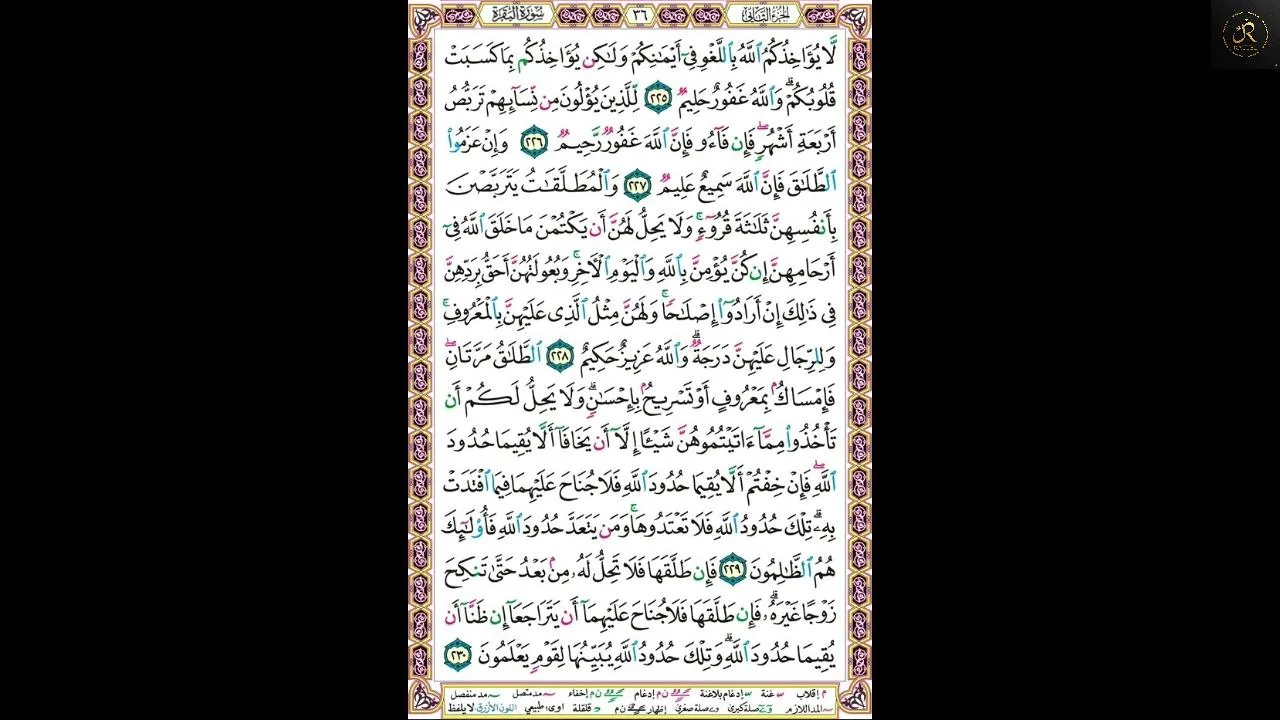 سُورَةُ البَقَرَةِ ٣٦ الجُزءُ الثَّانِي
لَّا يُؤَاخِذُكُمُ ٱللَّهُ بِٱللَّغْوِ فِىٓ أَيْمَٰنِكُمْ وَلَٰكِن يُؤَاخِذُكُم بِمَا كَسَبَتْ
قُلُوبُكُمْ ۗ وَٱللَّهُ غَفُورٌ حَلِيمٌ ٢٢٥ لِّلَّذِينَ يُؤْلُونَ مِن نِّسَآئِهِمْ تَرَبُّصُ
أَرْبَعَةِ أَشْهُرٍ ۖ فَإِن فَآءُو فَإِنَّ ٱللَّهَ غَفُورٌ رَّحِيمٌ ٢٢٦ وَإِنْ عَزَمُوا۟
ٱلطَّلَٰقَ فَإِنَّ ٱللَّهَ سَمِيعٌ عَلِيمٌ ٢٢٧ وَٱلْمُطَلَّقَٰتُ يَتَرَبَّصْنَ
بِأَنفُسِهِنَّ ثَلَٰثَةَ قُرُوٓءٍ ۚ وَلَا يَحِلُّ لَهُنَّ أَن يَكْتُمْنَ مَا خَلَقَ ٱللَّهُ فِىٓ
أَرْحَامِهِنَّ إِن كُنَّ يُؤْمِنَّ بِٱللَّهِ وَٱلْيَوْمِ ٱلْءَاخِرِ ۚ وَبُعُولَتُهُنَّ أَحَقُّ بِرَدِّهِنَّ
فِى ذَٰلِكَ إِنْ أَرَادُوٓا۟ إِصْلَٰحًا ۚ وَلَهُنَّ مِثْلُ ٱلَّذِى عَلَيْهِنَّ بِٱلْمَعْرُوفِ ۚ
وَلِلرِّجَالِ عَلَيْهِنَّ دَرَجَةٌ ۗ وَٱللَّهُ عَزِيزٌ حَكِيمٌ ٢٢٨ ٱلطَّلَٰقُ مَرَّتَانِ ۖ
فَإِمْسَاكٌۢ بِمَعْرُوفٍ أَوْ تَسْرِيحٌۢ بِإِحْسَٰنٍ ۗ وَلَا يَحِلُّ لَكُمْ أَن
تَأْخُذُوا۟ مِمَّآ ءَاتَيْتُمُوهُنَّ شَيْـًٔا إِلَّآ أَن يَخَافَآ أَلَّا يُقِيمَا حُدُودَ
ٱللَّهِ ۖ فَإِنْ خِفْتُمْ أَلَّا يُقِيمَا حُدُودَ ٱللَّهِ فَلَا جُنَاحَ عَلَيْهِمَا فِيمَا ٱفْتَدَتْ
بِهِۦ ۗ تِلْكَ حُدُودُ ٱللَّهِ فَلَا تَعْتَدُوهَا ۚ وَمَن يَتَعَدَّ حُدُودَ ٱللَّهِ فَأُو۟لَٰٓئِكَ
هُمُ ٱلظَّٰلِمُونَ ٢٢٩ فَإِن طَلَّقَهَا فَلَا تَحِلُّ لَهُۥ مِنۢ بَعْدُ حَتَّىٰ تَنكِحَ
زَوْجًا غَيْرَهُۥ ۗ فَإِن طَلَّقَهَا فَلَا جُنَاحَ عَلَيْهِمَآ أَن يَتَرَاجَعَآ إِن ظَنَّآ أَن
يُقِيمَا حُدُودَ ٱللَّهِ ۗ وَتِلْكَ حُدُودُ ٱللَّهِ يُبَيِّنُهَا لِقَوْمٍ يَعْلَمُونَ ٢٣٠
م إقلاب غنة إدغام بلاغنة ن م إدغام ن م إخفاء مد متصل مد منفصل
المد اللازم صلة كبرى صلة صغرى إظهار ن م قلقلة اوى طبيعي اللون الأزرق لا يلفظ